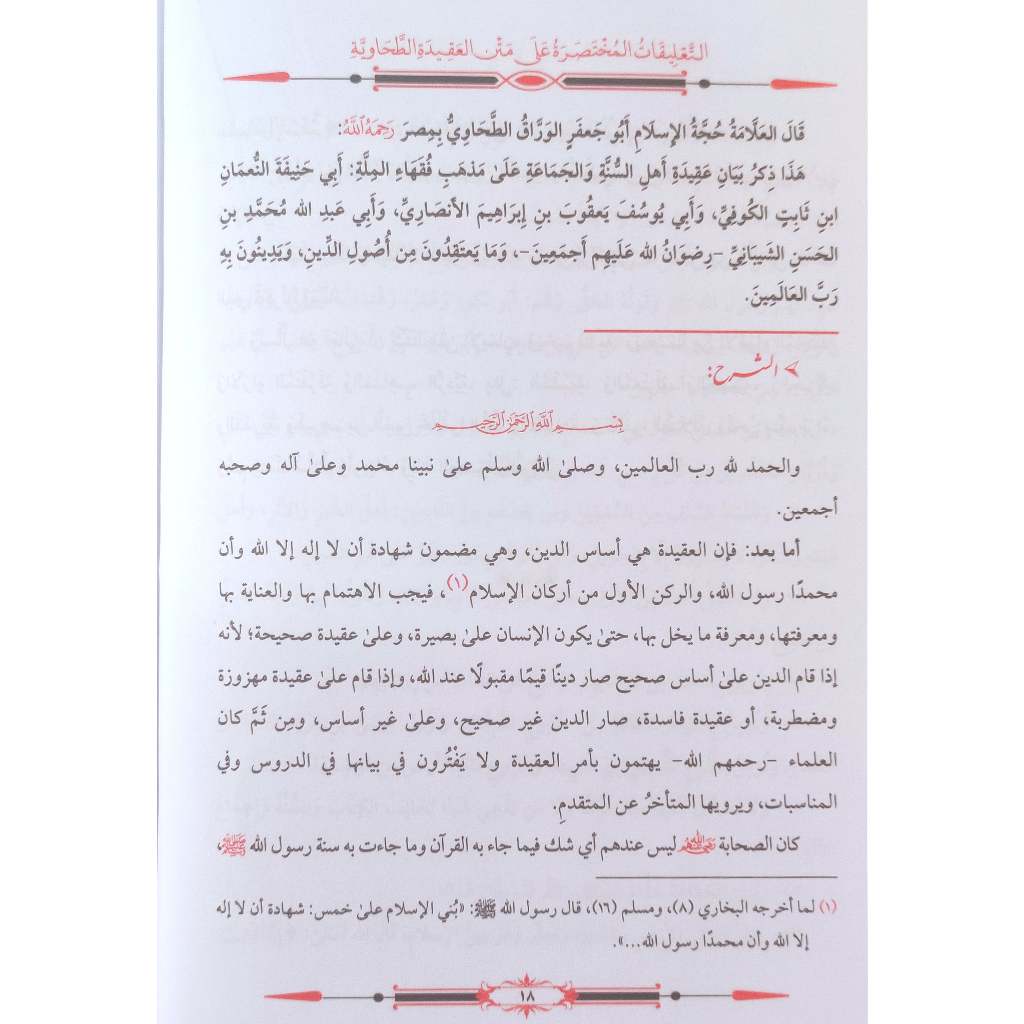 التَّعْلِيقَاتُ المُخْتَصَرَةُ عَلَى مَتْنِ العَقِيدَةِ الطَّحَاوِيَّةِ
قَالَ العَلَّامَةُ حُجَّةُ الإِسلَامِ أَبُو جَعفَرٍ الوَرَّاقُ الطَّحَاوِيُّ بِمِصرَ رَحِمَهُ اللَّهُ:
هَذَا ذِكرُ بَيَانِ عَقِيدَةِ أَهلِ السُّنَّةِ وَالجَمَاعَةِ عَلَىٰ مَذهَبِ فُقَهَاءِ المِلَّةِ: أَبِي حَنِيفَةَ النُّعمَانِ
ابنِ ثَابِتٍ الكُوفِيِّ، وَأَبِي يُوسُفَ يَعقُوبَ بنِ إِبرَاهِيمَ الأَنصَارِيِّ، وَأَبِي عَبدِ الله مُحَمَّدِ بنِ
الحَسَنِ الشَّيبَانِيِّ -رِضوَانُ الله عَلَيهِم أَجمَعِينَ-، وَمَا يَعتَقِدُونَ مِن أُصُولِ الدِّينِ، وَيَدِينُونَ بِهِ
رَبَّ العَالَمِينَ.
الشرح:
بِسْمِ اللَّهِ الرَّحْمَٰنِ الرَّحِيمِ
والحمد لله رب العالمين، وصلىٰ الله وسلم علىٰ نبينا محمد وعلىٰ آله وصحبه
أجمعين.
أما بعد: فإن العقيدة هي أساس الدين، وهي مضمون شهادة أن لا إله إلا الله وأن
محمدًا رسول الله، والركن الأول من أركان الإسلام(١)، فيجب الاهتمام بها والعناية بها
ومعرفتها، ومعرفة ما يخل بها، حتىٰ يكون الإنسان علىٰ بصيرة، وعلىٰ عقيدة صحيحة؛ لأنه
إذا قام الدين علىٰ أساس صحيح صار دينًا قيمًا مقبولًا عند الله، وإذا قام علىٰ عقيدة مهزوزة
ومضطربة، أو عقيدة فاسدة، صار الدين غير صحيح، وعلىٰ غير أساس، ومِن ثَمَّ كان
العلماء -رحمهم الله- يهتمون بأمر العقيدة ولا يَفْتُرون في بيانها في الدروس وفي
المناسبات، ويرويها المتأخرُ عن المتقدمِ.
كان الصحابة رضي الله عنهم ليس عندهم أي شك فيما جاء به القرآن وما جاءت به سنة رسول الله ﷺ،
(١) لما أخرجه البخاري (٨)، ومسلم (١٦)، قال رسول الله ﷺ: «بُني الإسلام علىٰ خمس: شهادة أن لا إله
إلا الله وأن محمدًا رسول الله...».
١٨